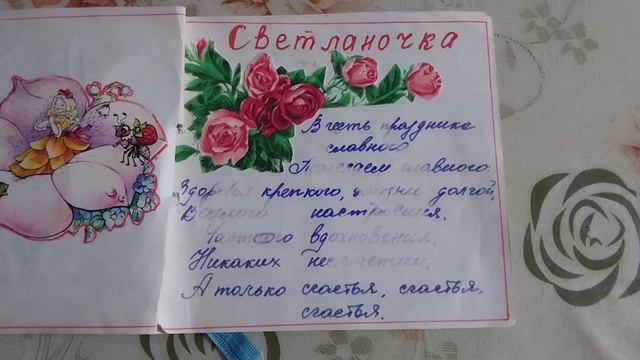 Светланочка
В честь праздника
славного
Пожелаем главного:
Здоровья крепкого, жизни долгой,
Веселого настроения,
Частого вдохновения,
Никаких несчастий,
А только счастья, счастья,
счастья.